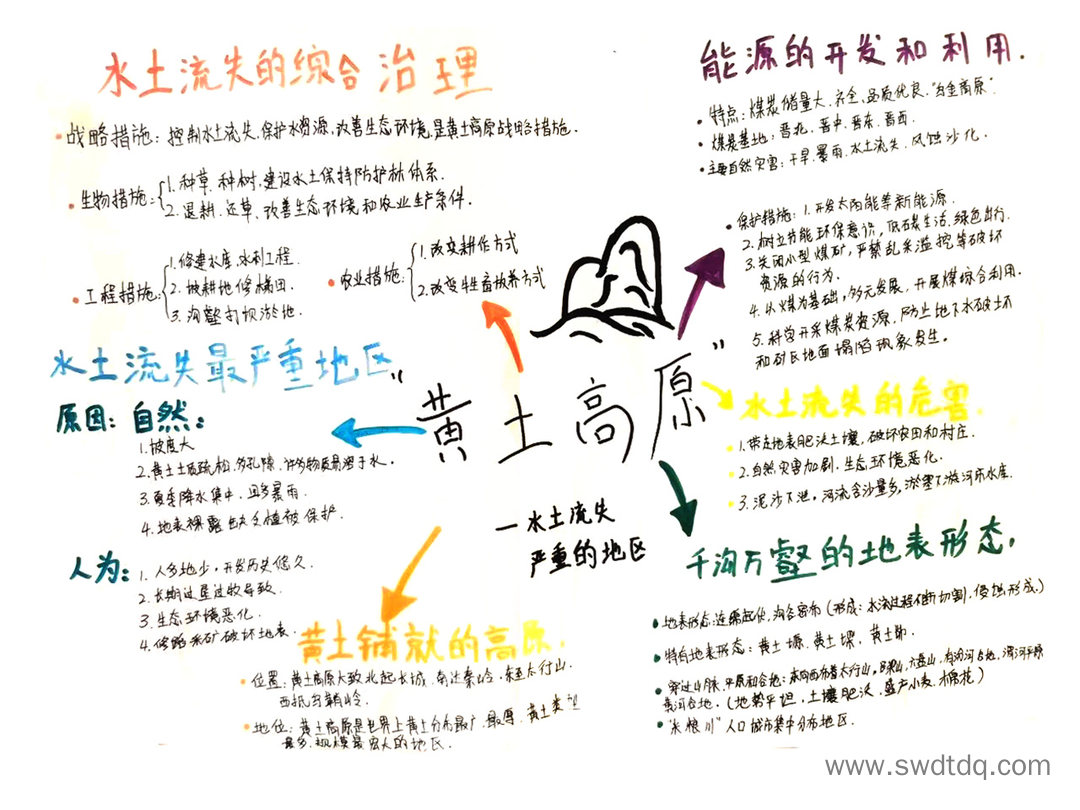 水土流失的综合治理
•战略措施：控制水土流失、保护水资源，改善生态环境，是黄土高原战略措施.
•生物措施：
1.种草、种树，建设水土保持防护林体系.
2.退耕、还草、改善生态环境和农业生产条件.
•工程措施：
1.修建水库、水利工程.
2.坡耕地修梯田.
3.沟壑打坝淤地.
•农业措施：
1.改变耕作方式
2.改变牲畜放养方式
能源的开发和利用.
•特点：煤炭储量大、齐全、品质优良.
•煤炭基地：晋北、晋中、晋东、晋西.
•主要自然灾害：干旱、暴雨、水土流失、风蚀沙化.
•保护措施：1.开发太阳能等新能源.
2.树立节能环保意识，低碳生活、绿色出行.
3.关闭小型煤矿，严禁乱采滥挖等破坏
资源的行为.
4.以煤为基础，多元发展，开展煤综合利用.
5.科学开采煤炭资源，防止地下水破坏
和矿区地面塌陷现象发生.
水土流失最严重地区
原因：自然：
1.坡度大
2.黄土土质疏松、多孔隙、许多物质易溶于水.
3.夏季降水集中，且多暴雨.
4.地表裸露缺乏植被保护.
人为：
1.人多地少，开发历史悠久.
2.长期过垦过牧导致.
3.生态环境恶化.
4.修路采矿破坏地表.
“黄土高原”
—水土流失
严重的地区
水土流失的危害.
1.带走地表肥沃土壤，破坏农田和村庄.
2.自然灾害加剧、生态环境恶化.
3.泥沙下泄，河流含沙量多，淤塞下游河床水库.
千沟万壑的地表形态.
•地表形态：连绵起伏，沟谷密布（形成：水流过程不断切割、侵蚀形成）
•特有地表形态：黄土塬、黄土梁、黄土峁.
•穿过山脉、平原和谷地：太行山、六盘山、汾河谷地、渭河平原
黄河谷地.（地势平坦，土壤肥沃，盛产小麦、棉花）
•“米粮川”人口城市集中分布地区.
黄土铺就的高原.
•位置：黄土高原大致北起长城、南达秦岭、东至太行山.
西抵乌鞘岭.
•地位：黄土高原是世界上黄土分布最广、最厚、黄土类型
最多、规模最宏大的地区.
www.swdtdq.com